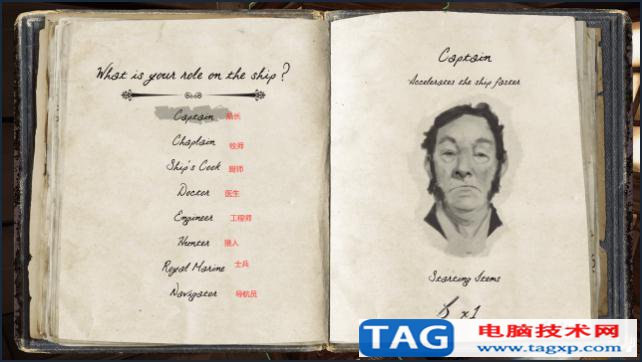 What is your role on the ship?
Captain 船长
Chaplain 牧师
Ship's Cook 厨师
Doctor 医生
Engineer 工程师
Hunter 猎人
Royal Marine 士兵
Navigator 导航员
Captain
Accelerates the ship faster
Starting Items
x1
TAG 电脑技术网
www.tagxp.com